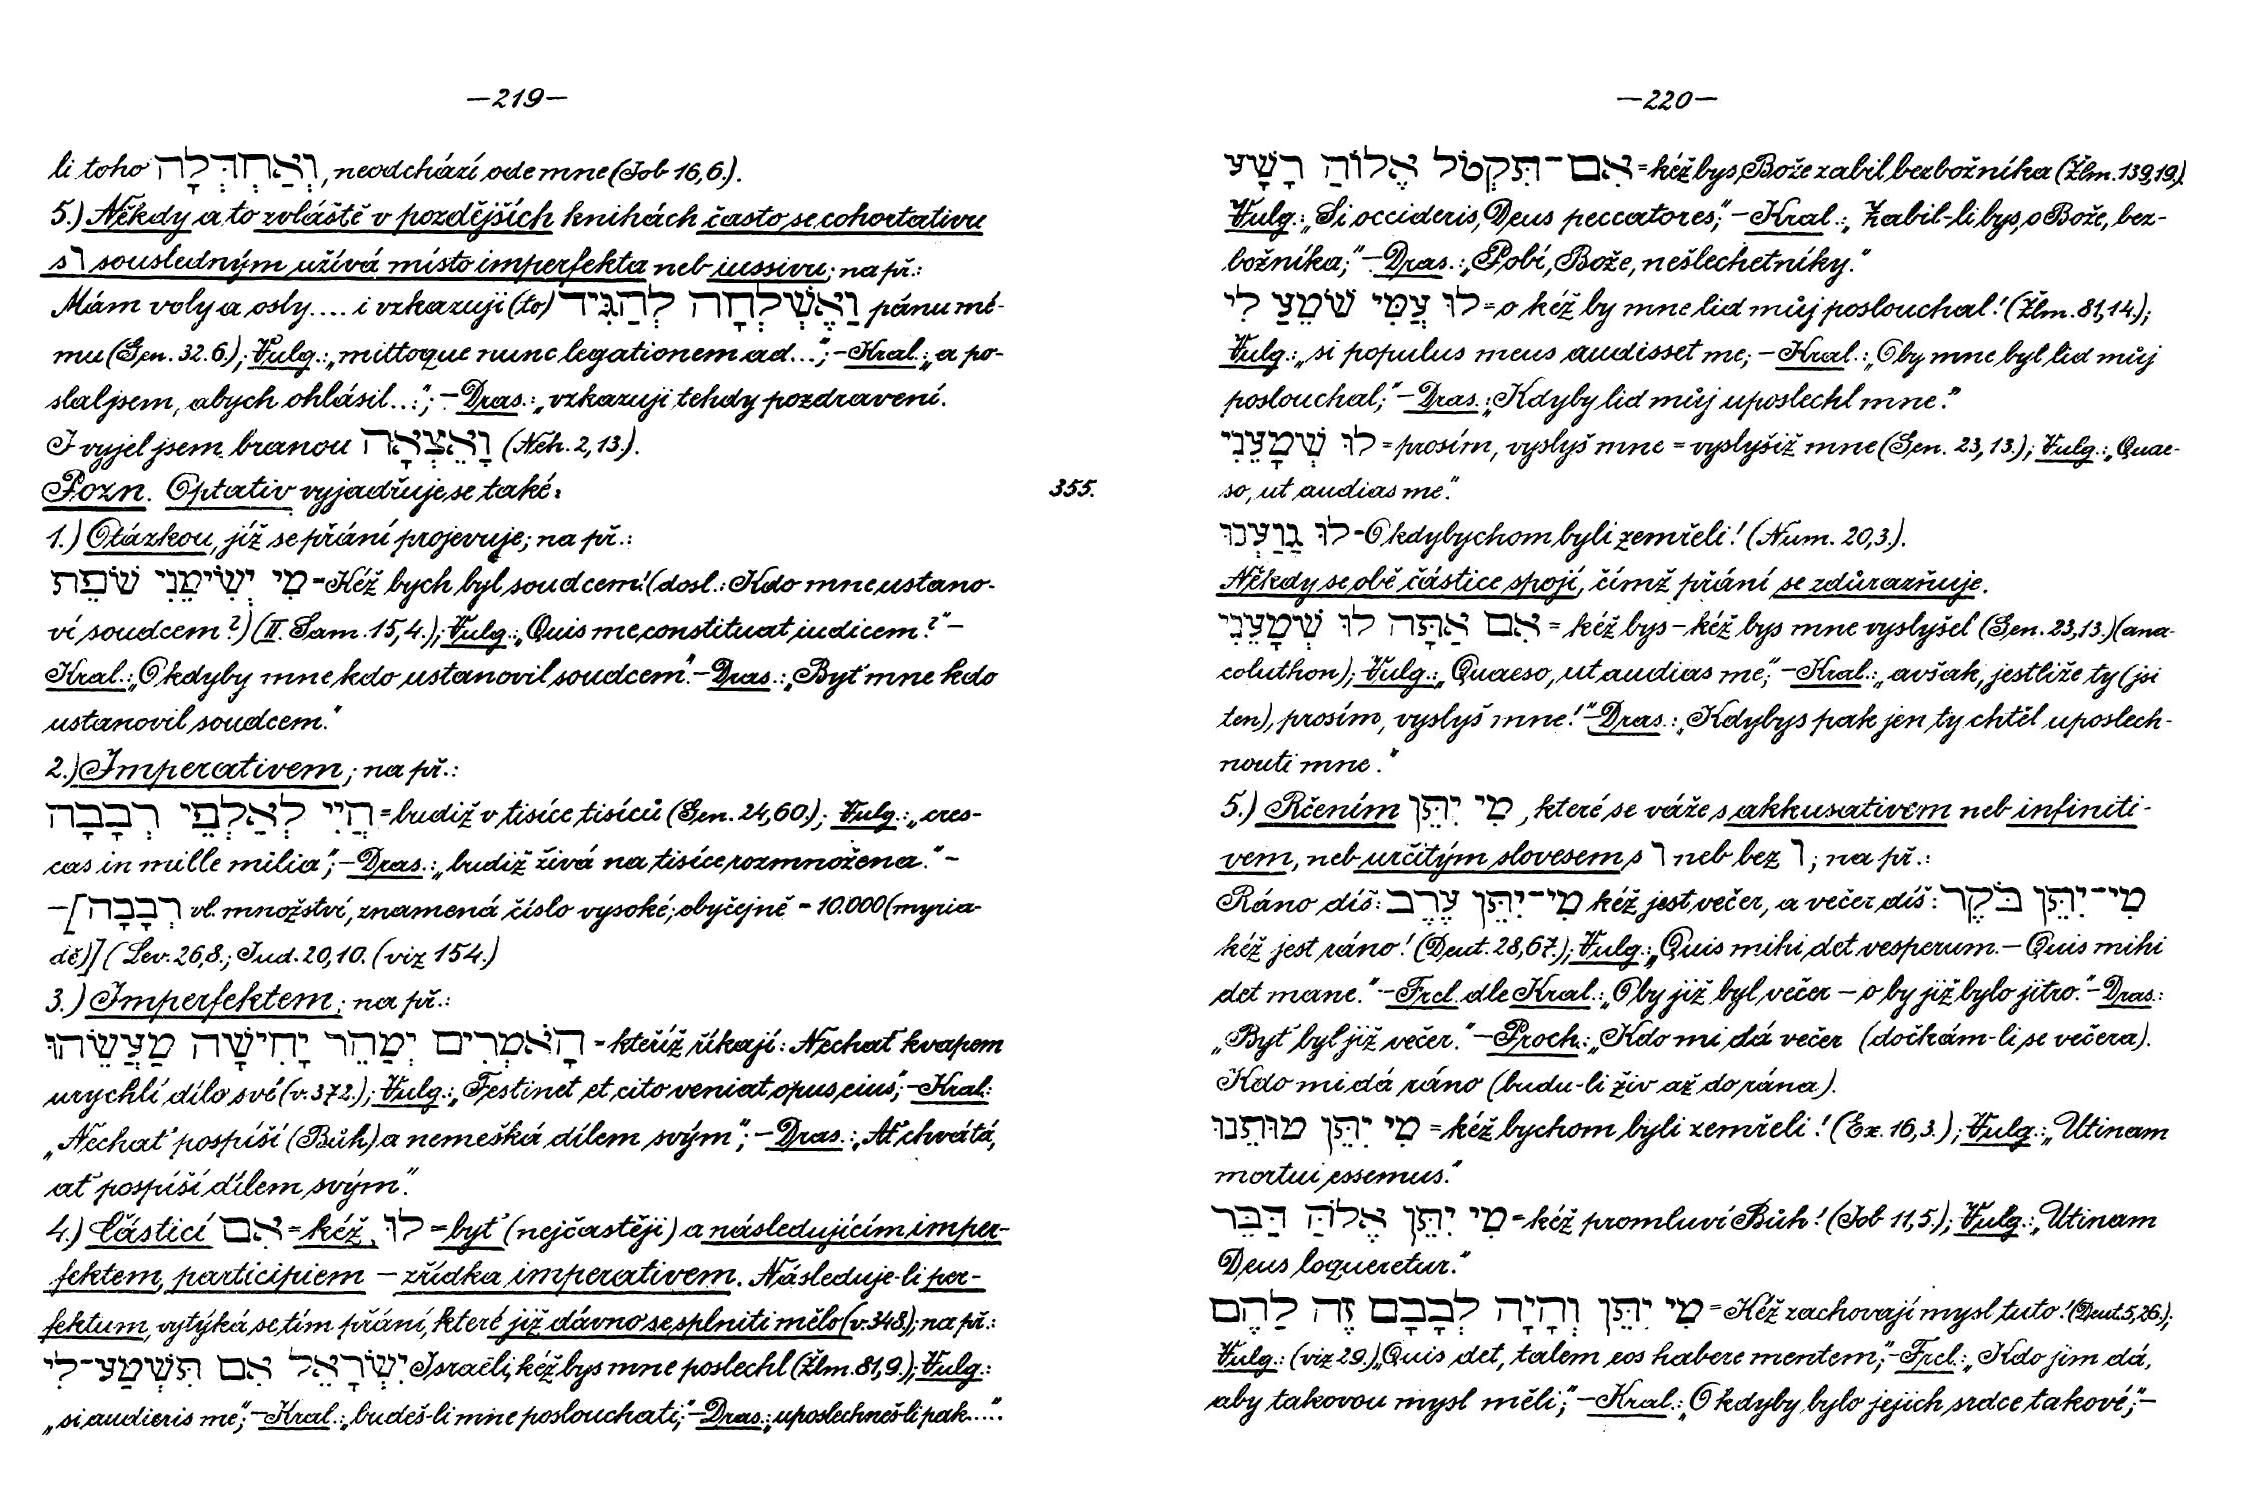 —219—
li toho וְאַחְדְּלָה, neodchází ode mne (Job 16,6.).
5.) Někdy a to zvláště v pozdějších knihách často se cohortativu
s ו sousledným užívá místo imperfekta neb iussivu; na př.:
Mám voly a osly.... i vzkazuji (to) וָאֶשְׁלְחָה לְהַגִּיד pánu mé-
mu (Gen. 32.6.); Vulg.: „mittoque nunc legationem ad..."; – Kral.: „a po-
slal jsem, abych ohlásil..."; – Dras.: „vzkazuji tehdy pozdravení.
I vyjel jsem branou וָאֵצְאָה (Neh. 2,13.).
Pozn. Optativ vyjadřuje se také:
355.
1.) Otázkou, jíž se přání projevuje; na př.:
מִי יְשִׂימֵנִי שֹׁפֵט = Kéž bych byl soudcem! (dosl.: Kdo mne ustano-
ví soudcem?) (II. Sam. 15,4.); Vulg.: „Quis me constituat iudicem?" –
Kral.: „O kdyby mne kdo ustanovil soudcem". – Dras.: „Byť mne kdo
ustanovil soudcem."
2.) Imperativem; na př.:
הֲיִי לְאַלְפֵי רְבָבָה = budiž v tisíce tisíců (Gen. 24,60.); Vulg.: „cres-
cas in mille milia"; – Dras.: „budiž živá na tisíce rozmnožena." –
–[רְבָבָה vl. množství, znamená číslo vysoké; obyčejně = 10.000 (myria-
dě)] (Lev. 26,8.; Jud. 20,10. (viz 154.)
3.) Imperfektem; na př.:
הָאֹמְרִים יְמַהֵר יָחִישָׁה מַעֲשֵׂהוּ = kteříž říkají: Nechať kvapem
urychlí dílo své (v. 372.); Vulg.: „Festinet et cito veniat opus eius"; – Kral.:
„Nechať pospíší (Bůh) a nemešká dílem svým"; – Dras.: „Ať chvátá,
ať pospíší dílem svým".
4.) Částicí אִם = kéž, לוּ = byť (nejčastěji) a následujícím imper-
fektem, participiem – zřídka imperativem. Následuje-li per-
fektum, vytýká se tím přání, které již dávno se splniti mělo (v. 348.); na př.:
יִשְׂרָאֵל אִם תִּשְׁמַע־לִי Israéli, kéž bys mne poslechl (Žlm. 81,9.); Vulg.:
„si audieris me"; – Kral.: „budeš-li mne poslouchati;" – Dras.: „uposlechneš-li pak....".
—220—
אִם־תִּקְטֹל אֱלוֹהַּ רָשָׁע = kéž bys, Bože zabil bezbožníka (Žlm. 139,19.).
Vulg.: „Si occideris, Deus peccatores"; – Kral.: „Zabil-li bys, o Bože, bez-
božníka;" – Dras.: „Pobí, Bože, nešlechetníky."
לוּ עַמִּי שֹׁמֵעַ לִי = o kéž by mne lid můj poslouchal! (Žlm. 81,14.);
Vulg.: „si populus meus audisset me; – Kral.: „O by mne byl lid můj
poslouchal;" – Dras.: „Kdyby lid můj uposlechl mne."
לוּ שְׁמָעֵנִי = prosím, vyslyš mne = vyslyšiž mne (Gen. 23,13.); Vulg.: „Quae-
so, ut audias me".
לוּ גָוַעְנוּ = O kdybychom byli zemřeli! (Num. 20,3.).
Někdy se obě částice spojí, čímž přání se zdůrazňuje.
אִם אַתָּה לוּ שְׁמָעֵנִי = kéž bys – kéž bys mne vyslyšel (Gen. 23,13.) (ana-
coluthon); Vulg.: „Quaeso, ut audias me;" – Kral.: „avšak, jestliže ty (jsi
ten), prosím, vyslyš mne!" – Dras.: „Kdybys pak jen ty chtěl uposlech-
nouti mne."
5.) Rčením מִי יִתֵּן, které se váže s akkusativem neb infiniti-
vem, neb určitým slovesem s ו neb bez ו; na př.:
Ráno díš: מִי־יִתֵּן עֶרֶב kéž jest večer, a večer díš: מִי־יִתֵּן בֹּקֶר
kéž jest ráno! (Deut. 28,67.); Vulg.: „Quis mihi det vesperum. – Quis mihi
det mane." – Frcl. dle Kral.: „O by již byl večer – o by již bylo jitro." – Dras.:
„Byť byl již večer." – Proch.: „Kdo mi dá večer (dočkám-li se večera).
Kdo mi dá ráno (budu-li živ až do rána).
מִי יִתֵּן מוּתֵנוּ = kéž bychom byli zemřeli! (Ex. 16,3.); Vulg.: „Utinam
mortui essemus."
מִי יִתֵּן אֱלֹהַּ דַּבֵּר = kéž promluví Bůh! (Job 11,5.); Vulg.: „Utinam
Deus loqueretur."
מִי יִתֵּן וְהָיָה לְבָבָם זֶה לָהֶם = Kéž zachovají mysl tuto! (Deut. 5,26.);
Vulg.: (viz 29.) „Quis det, talem eos habere mentem"; – Frcl.: „Kdo jim dá,
aby takovou mysl měli"; – Kral.: „O kdyby bylo jejich srdce takové"; –